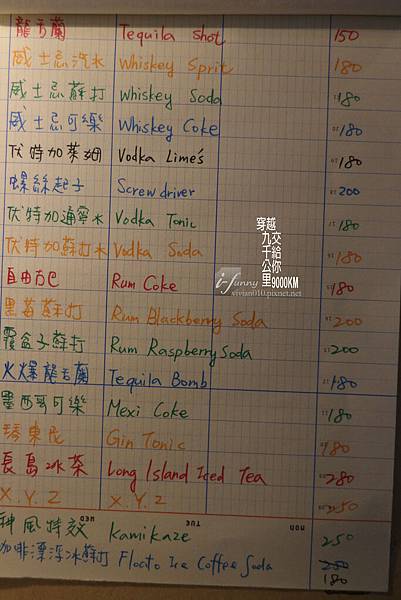 龍舌蘭 Tequila Shot 150
威士忌汽水 Whiskey Sprit 180
威士忌蘇打 Whiskey Soda 180
威士忌可樂 Whiskey Coke 180
伏特加萊姆 Vodka Lime's 180
螺絲起子 Screwdriver 200
伏特加通寧水 Vodka Tonic 180
伏特加蘇打水 Vodka Soda 180
自由古巴 Rum Coke 180
黑莓蘇打 Rum Blackberry Soda 200
覆盆子蘇打 Rum Raspberry Soda 200
火爆龍舌蘭 Tequila Bomb 180
墨西哥可樂 Mexi Coke 180
琴東尼 Gin Tonic 180
長島冰茶 Long Island Iced Tea 280
X.Y.Z X.Y.Z 250
WED TUE MON
神風特攻 Kamikaze 250
咖啡漂浮冰蘇打 Floato Ice Coffee Soda 250
180
穿越九千公里
交給你
9000KM
i-funny
vivian010.pixnet.net